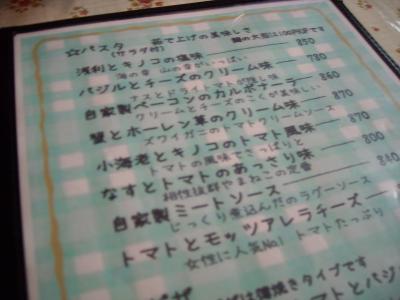 ☆パスタ 茹で上げの美味しさ
(サラダ付) 麺の大盛は100円UPです
浅利とキノコの塩味 850
海の幸 山の幸がいっぱい
バジルとチーズのクリーム味 780
ナスとドライトマトが隠し味
自家製ベーコンのカルボナーラ 860
クリームとチーズのこくが美味しい
蟹とホーレン草のクリーム味 860
ズワイガニのトマトクリームソース
小海老とキノコのトマト風味 870
トマトの風味でさっぱりと
なすとトマトのあっさり味 800
相性抜群やまねこの定番
自家製ミートソース 840
じっくり煮込んだラグーソース
トマトとモッツァレラチーズ
女性に人気No1 トマトたっぷり
焼きタイプです